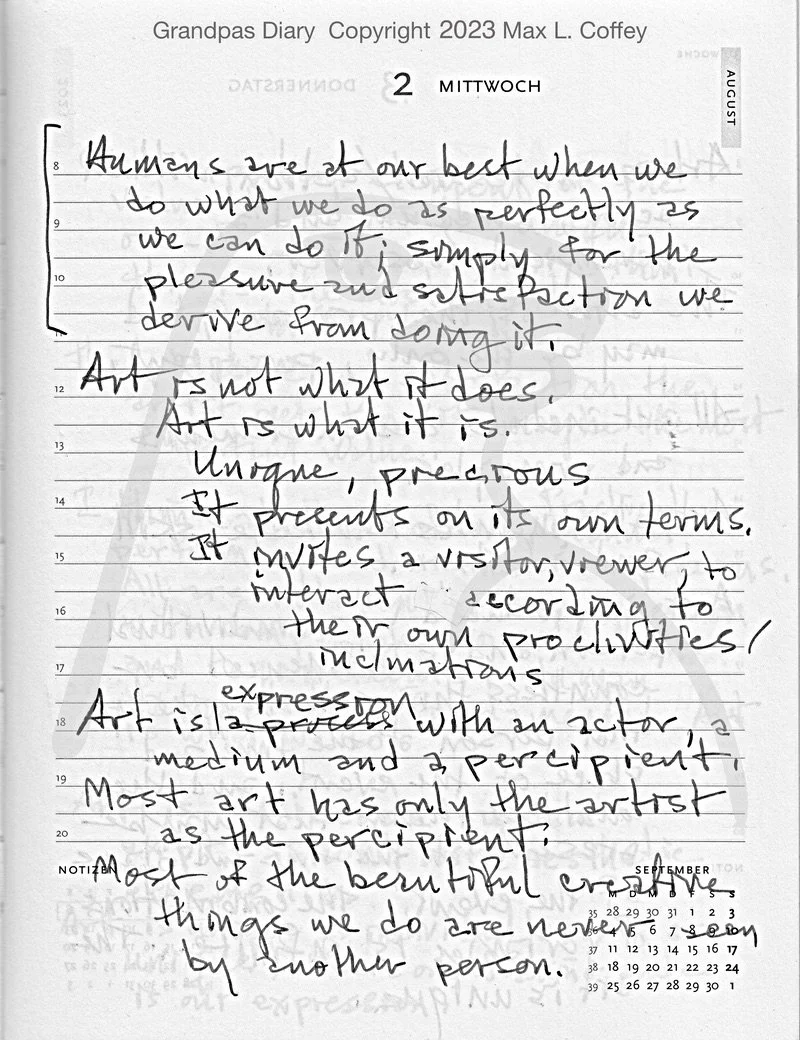 Grandpas Diary Copyright 2023 Max L. Coffey
2 MITTWOCH
AUGUST
8 Humans are at our best when we
do what we do as perfectly as
9
we can do it; simply for the
10 pleasure and satisfaction we
derive from doing it.
11
12 Art is not what it does.
Art is what it is.
13
Unique, precious
14 It presents on its own terms.
15 It invites a visitor, viewer, to
interact according to
16 their own proclivities/
inclinations
17
expression
18 Art is a process with an actor, a
medium and a percipient.
19 Most art has only the artist
20 as the percipient.
NOTIZEN Most of the beautiful creative
things we do are never seen
by another person.
SEPTEMBER
M D M D F S S
35 28 29 30 31 1 2 3
36 4 5 6 7 8 9 10
37 11 12 13 14 15 16 17
38 18 19 20 21 22 23 24
39 25 26 27 28 29 30 1